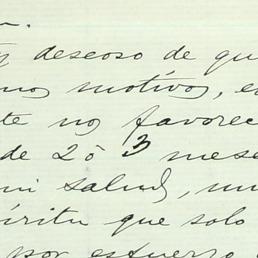 deseoso de qu
mos motivos, e
te nos favorec
de 2 ò 3 mese
mi salud, mu
íritu que solo
por esfuerzo